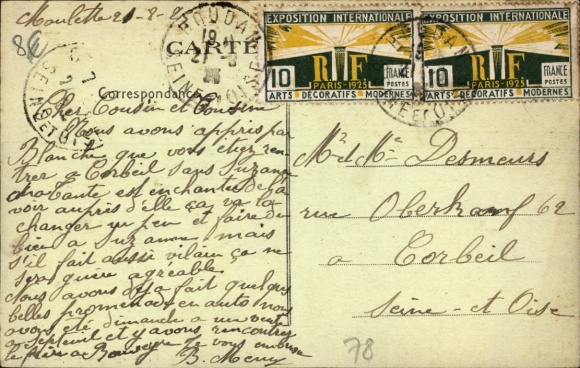 Maulette 21-8-2
CARTE
HOUDAN
SEINE ET OISE
EXPOSITION INTERNATIONALE
10 RF FRANCE POSTES
PARIS-1925
ARTS DÉCORATIFS MODERNES
EXPOSITION INTERNATIONALE
10 RF FRANCE POSTES
PARIS-1925
ARTS DÉCORATIFS MODERNES
Correspondance
Cher Cousin et Cousine
Nous avons appris par
Blanche que vous etiez ren
trer a Corbeil sans Suzanne
Tante est enchantée de la
voir auprès d'elle ça va la
changer un peu et faire du
bien a Suzanne mais
s'il fait aussi vilain ça ne
sera guère agréable
Nous avons déja fait quelques
belles promenades en auto nous
avons été dimanche a une vente
a Septeuil et y avons rencontré
le frère a je vous embrasse
B.
Mr et Me Desmeurs
rue Oberkampf 62
a Corbeil
Seine-et Oise
78